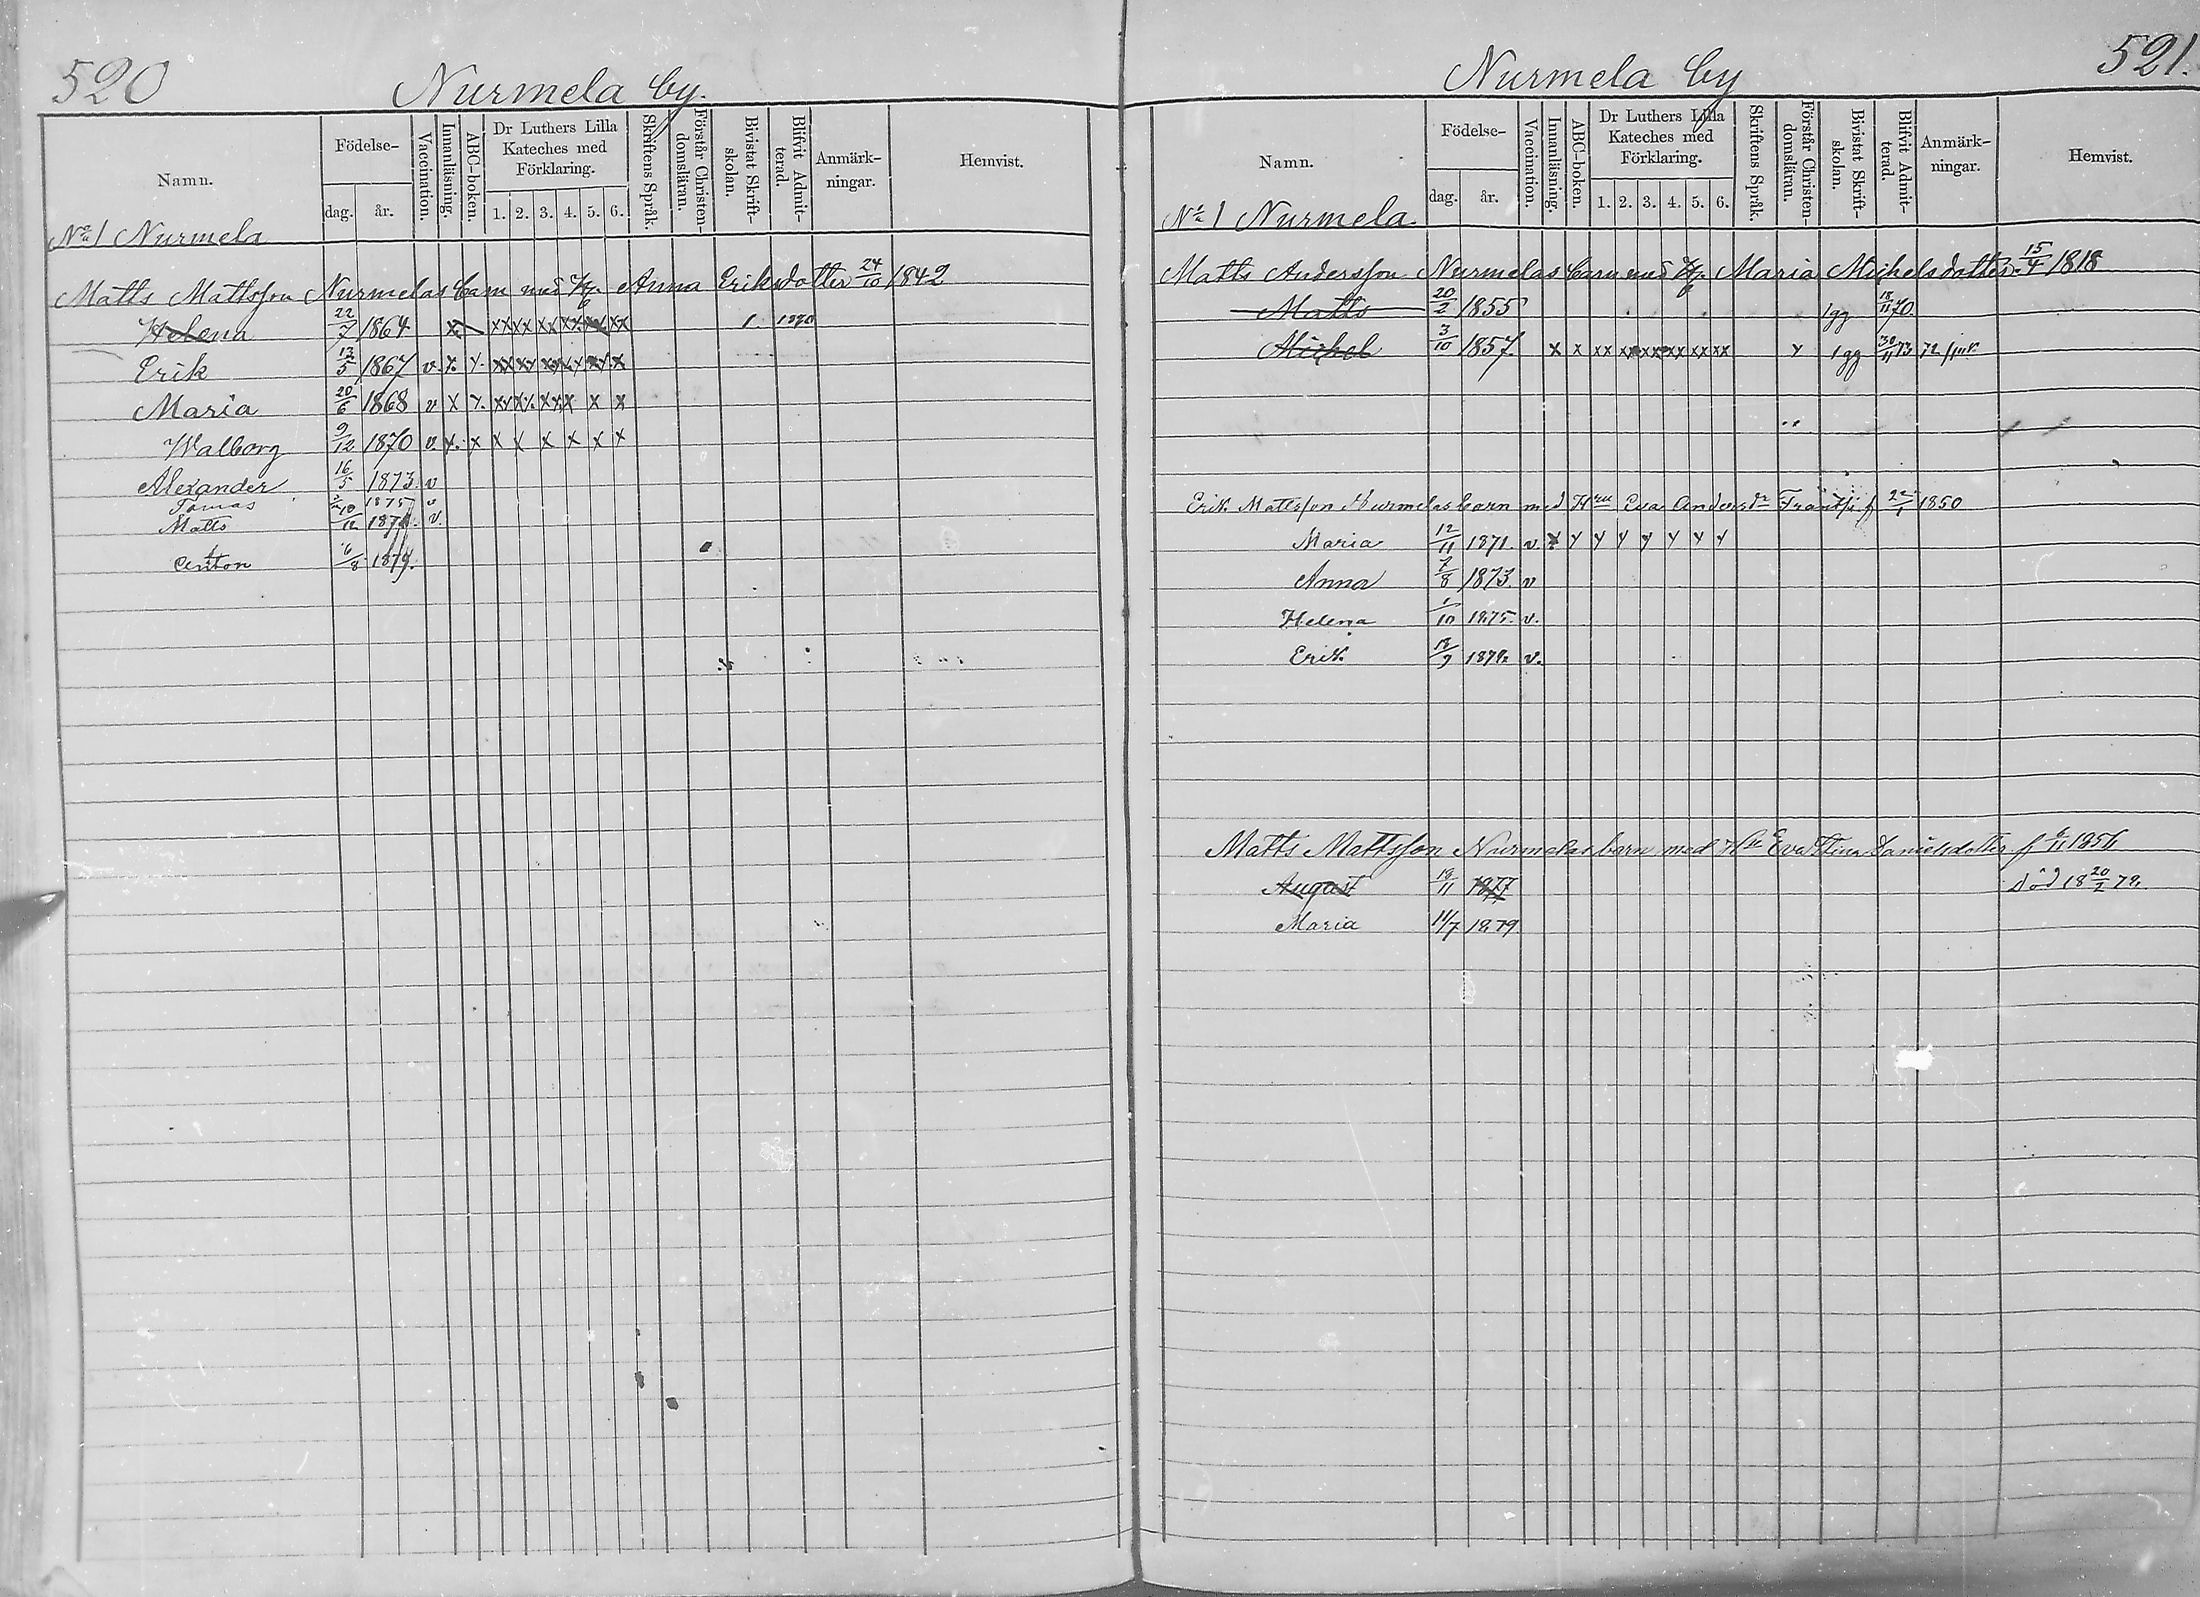 520
Nurmela by.
Namn.
Födelse-
dag. år.
Vaccination.
Innanläsning.
ABC-boken.
Dr Luthers Lilla Kateches med Förklaring.
1. 2. 3. 4. 5. 6.
Skriftens Språk.
Förstår Christen-domsläran.
Bivistat Skrift-skolan.
Blifvit Admit-terad.
Anmärk-ningar.
Hemvist.
No 1 Nurmela
Matts Mattsson Nurmelas barn med Anna Eriksdotter 24/10 1842
Helena 22/7 1864 x xx xx xx xx xx xx 1
Erik 13/5 1867 v. x x xx xx xx xx xx xx
Maria 20/6 1868 v x x xx xx xx x x x
Walborg 9/12 1870 v. x x x x x x x x
Alexander 16/5 1873 v
Tomas 1875 v
Matts v.
Anton 1879.
521.
Nurmela by
Namn.
Födelse-
dag. år.
Vaccination.
Innanläsning.
ABC-boken.
Dr Luthers Lilla Kateches med Förklaring.
1. 2. 3. 4. 5. 6.
Skriftens Språk.
Förstår Christen-domsläran.
Bivistat Skrift-skolan.
Blifvit Admit-terad.
Anmärk-ningar.
Hemvist.
No 1 Nurmela.
Matts Andersson Nurmelas barn med Maria Michelsdotter 15/4 1818
Matts 20/2 1855 1 gg 18/11 70
Michel 3/10 1857. x x xx xx xx xx xx xx x 1 gg 30/11 73
Erik Mattsson Nurmelas barn med Hru Eva Andersdr f 22/1 1850
Maria 12/11 1871. v. x x x x x x x x
Anna 7/8 1873. v
Helena 1/10 1875. v.
Erik 18/9 1878. v.
Matts Mattsson Nurmelas barn med Eva Stina Danielsdotter f 1856
August 18/11 1877 död 18 20/2 78.
Maria 11/7 1879